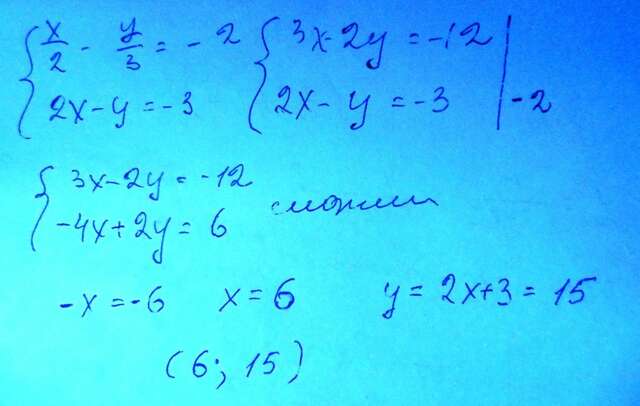 { x/2 - y/3 = -2 { 3x-2y = -12 |
2x-y = -3 2x-y = -3 | -2
{ 3x-2y = -12
-4x+2y = 6 сложим
-x = -6 x = 6 y = 2x+3 = 15
(6; 15)